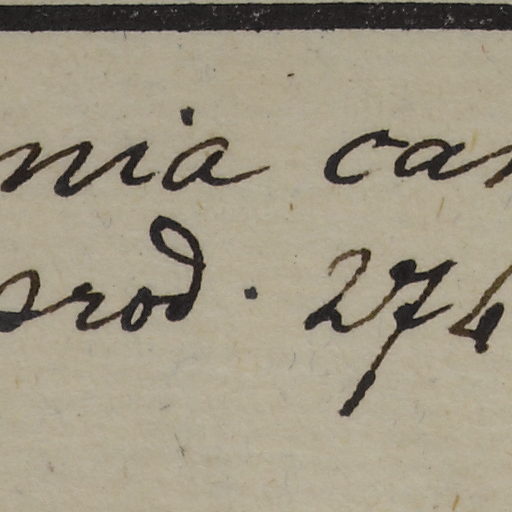 nia can
srod. 274